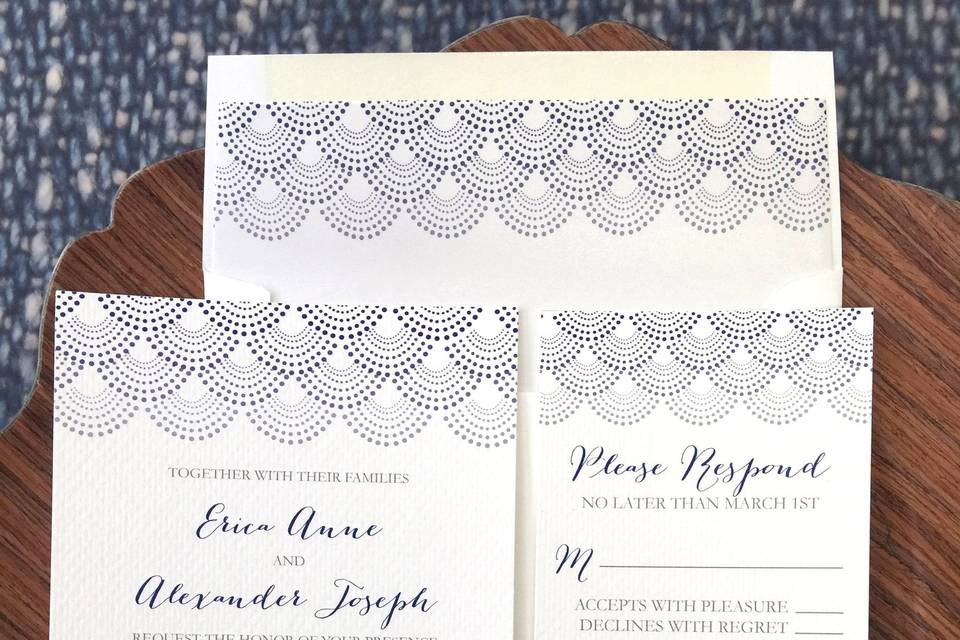 TOGETHER WITH THEIR FAMILIES
Erica Anne
AND
Alexander Joseph
REQUEST THE HONOR OF YOUR PRESENCE
Please Respond
NO LATER THAN MARCH 1ST
M
ACCEPTS WITH PLEASURE
DECLINES WITH REGRET